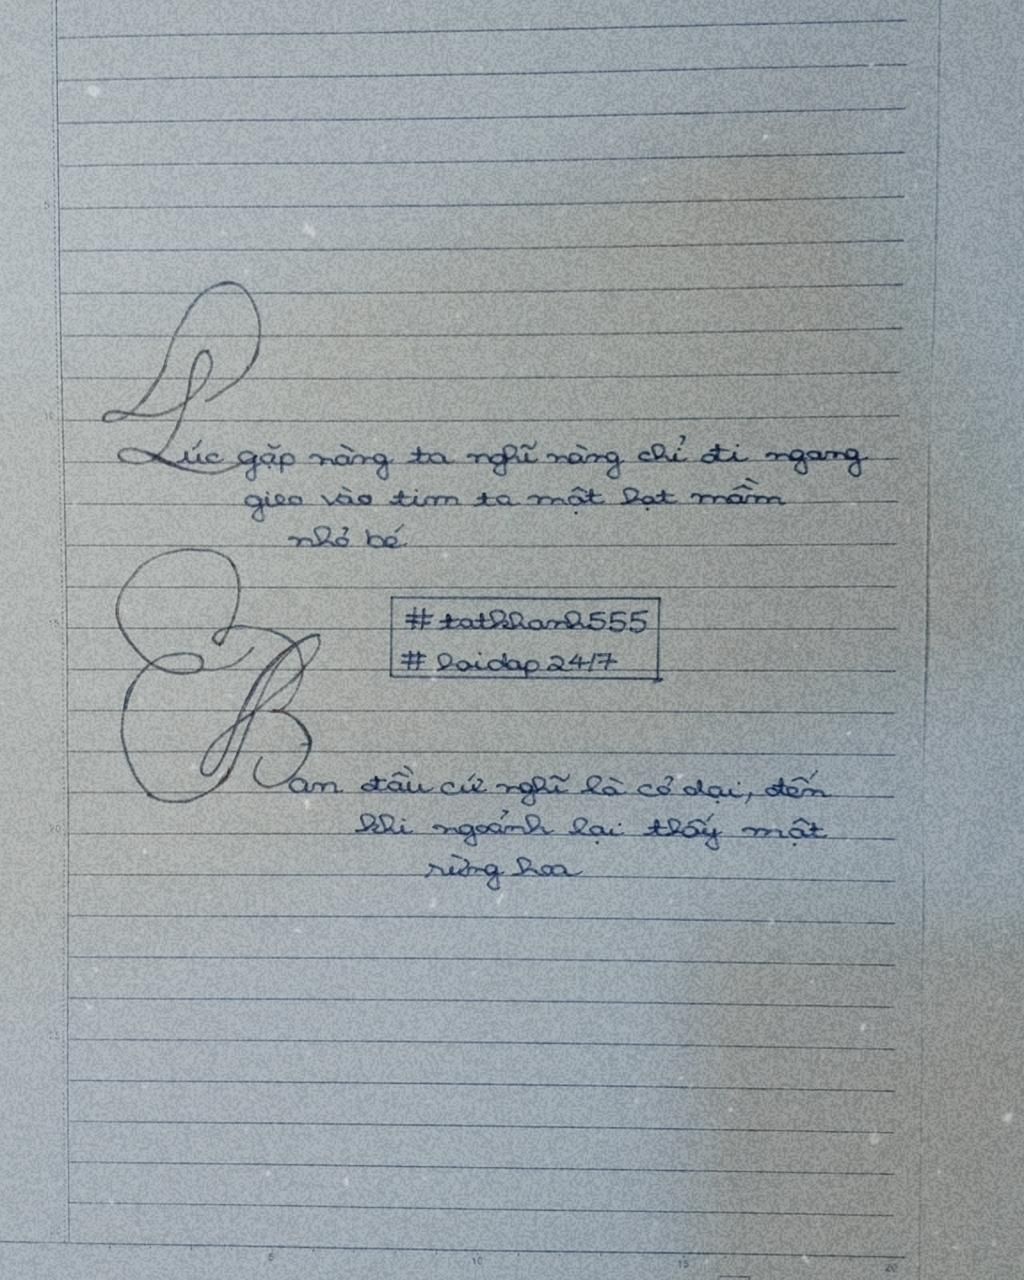 Lúc gặp nàng ta nghĩ nàng chỉ đi ngang
gieo vào tim ta một hạt mầm
nhỏ bé
#tathhanh555
#haidap24/7
Ban đầu cứ nghĩ là cỏ dại, đến
khi ngoảnh lại thấy một
rừng hoa
5
10
15
20
25
5
10
15
20